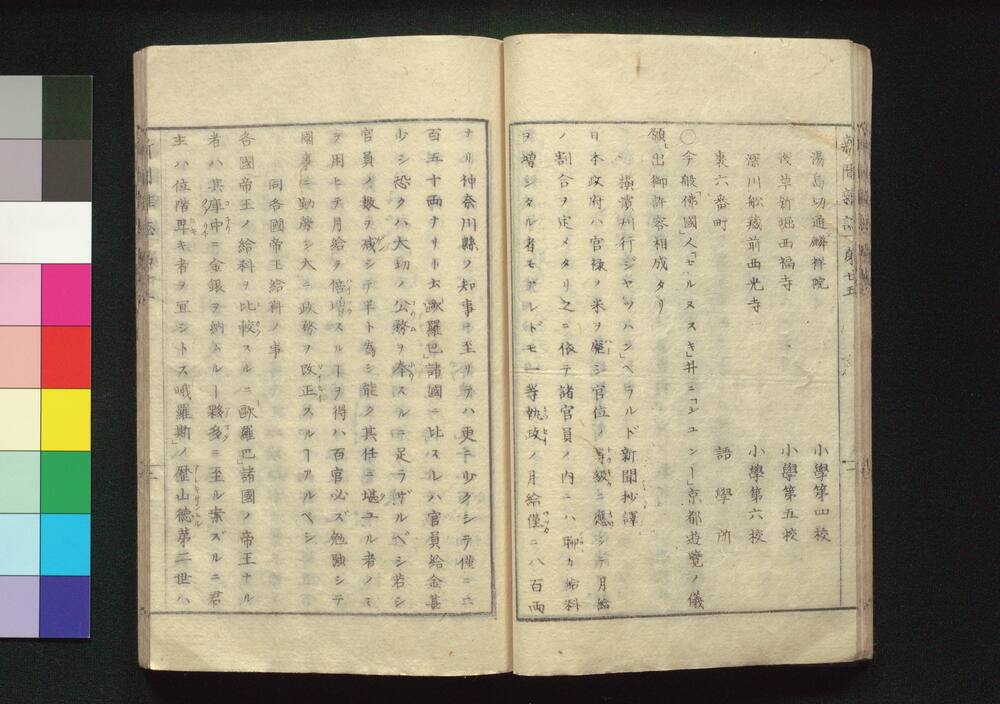 湯島切通麟祥院　小學第四校
浅草新堀西福寺　小學第五校
深川舩蔵前西光寺　小學第六校
裏六番町　語學所
〇今般佛國人「セールヌスキ」并ニ「ジユンー」京都遊覧ノ儀
願出御許容相成タリ
横濱刊行ジヤツハン」ヘラルド新聞抄譯
日本政府ハ官禄ノ米ヲ廢シ官位ノ等級ニ應シテ月給
ノ割合ヲ定メタリ之ニ依テ諸官員ノ内ニハ聊カ給料
ヲ増シタル者モアレドモ一等執政ノ月給僅ニ八百両
ナリ神奈川縣ノ知事ニ至リテハ更ニ少クシテ僅ニ二
百五十両ナリト云歐羅巴諸國ニ比スレハ官員給金甚
少シ恐クハ大切ノ公務ヲ奉スルニ足ラザルベシ若シ
官員ノ数ヲ減シテ半ト為シ能ク其任ニ堪ユル者ノミ
ヲ用ヒテ月給ヲ倍増スルヿヲ得ハ百官必ズ勉強シテ
國事ニ勤労シ大ニ政務ヲ改正スルヿアルベシ
同各國帝王給料ノ事
各國帝王ノ給料ヲ比較スルニ「歐羅巴」諸國ノ帝王ナル
者ハ其庫中ニ金銀ヲ納ムルヿ夥多ニ至ル案ズルニ君
主ハ位階卑キ者ヲ宜シトス峨羅斯」ノ歴山徳第二世ハ
新聞雑誌　第七五